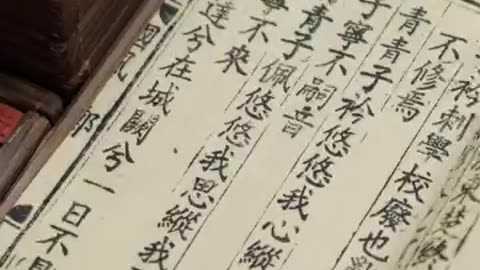 衿刺學校廢也
不修焉
青青子衿悠悠我心縱
子寧不嗣音
青子佩悠悠我思縱我
不來
達兮在城闕兮一日不見
國風